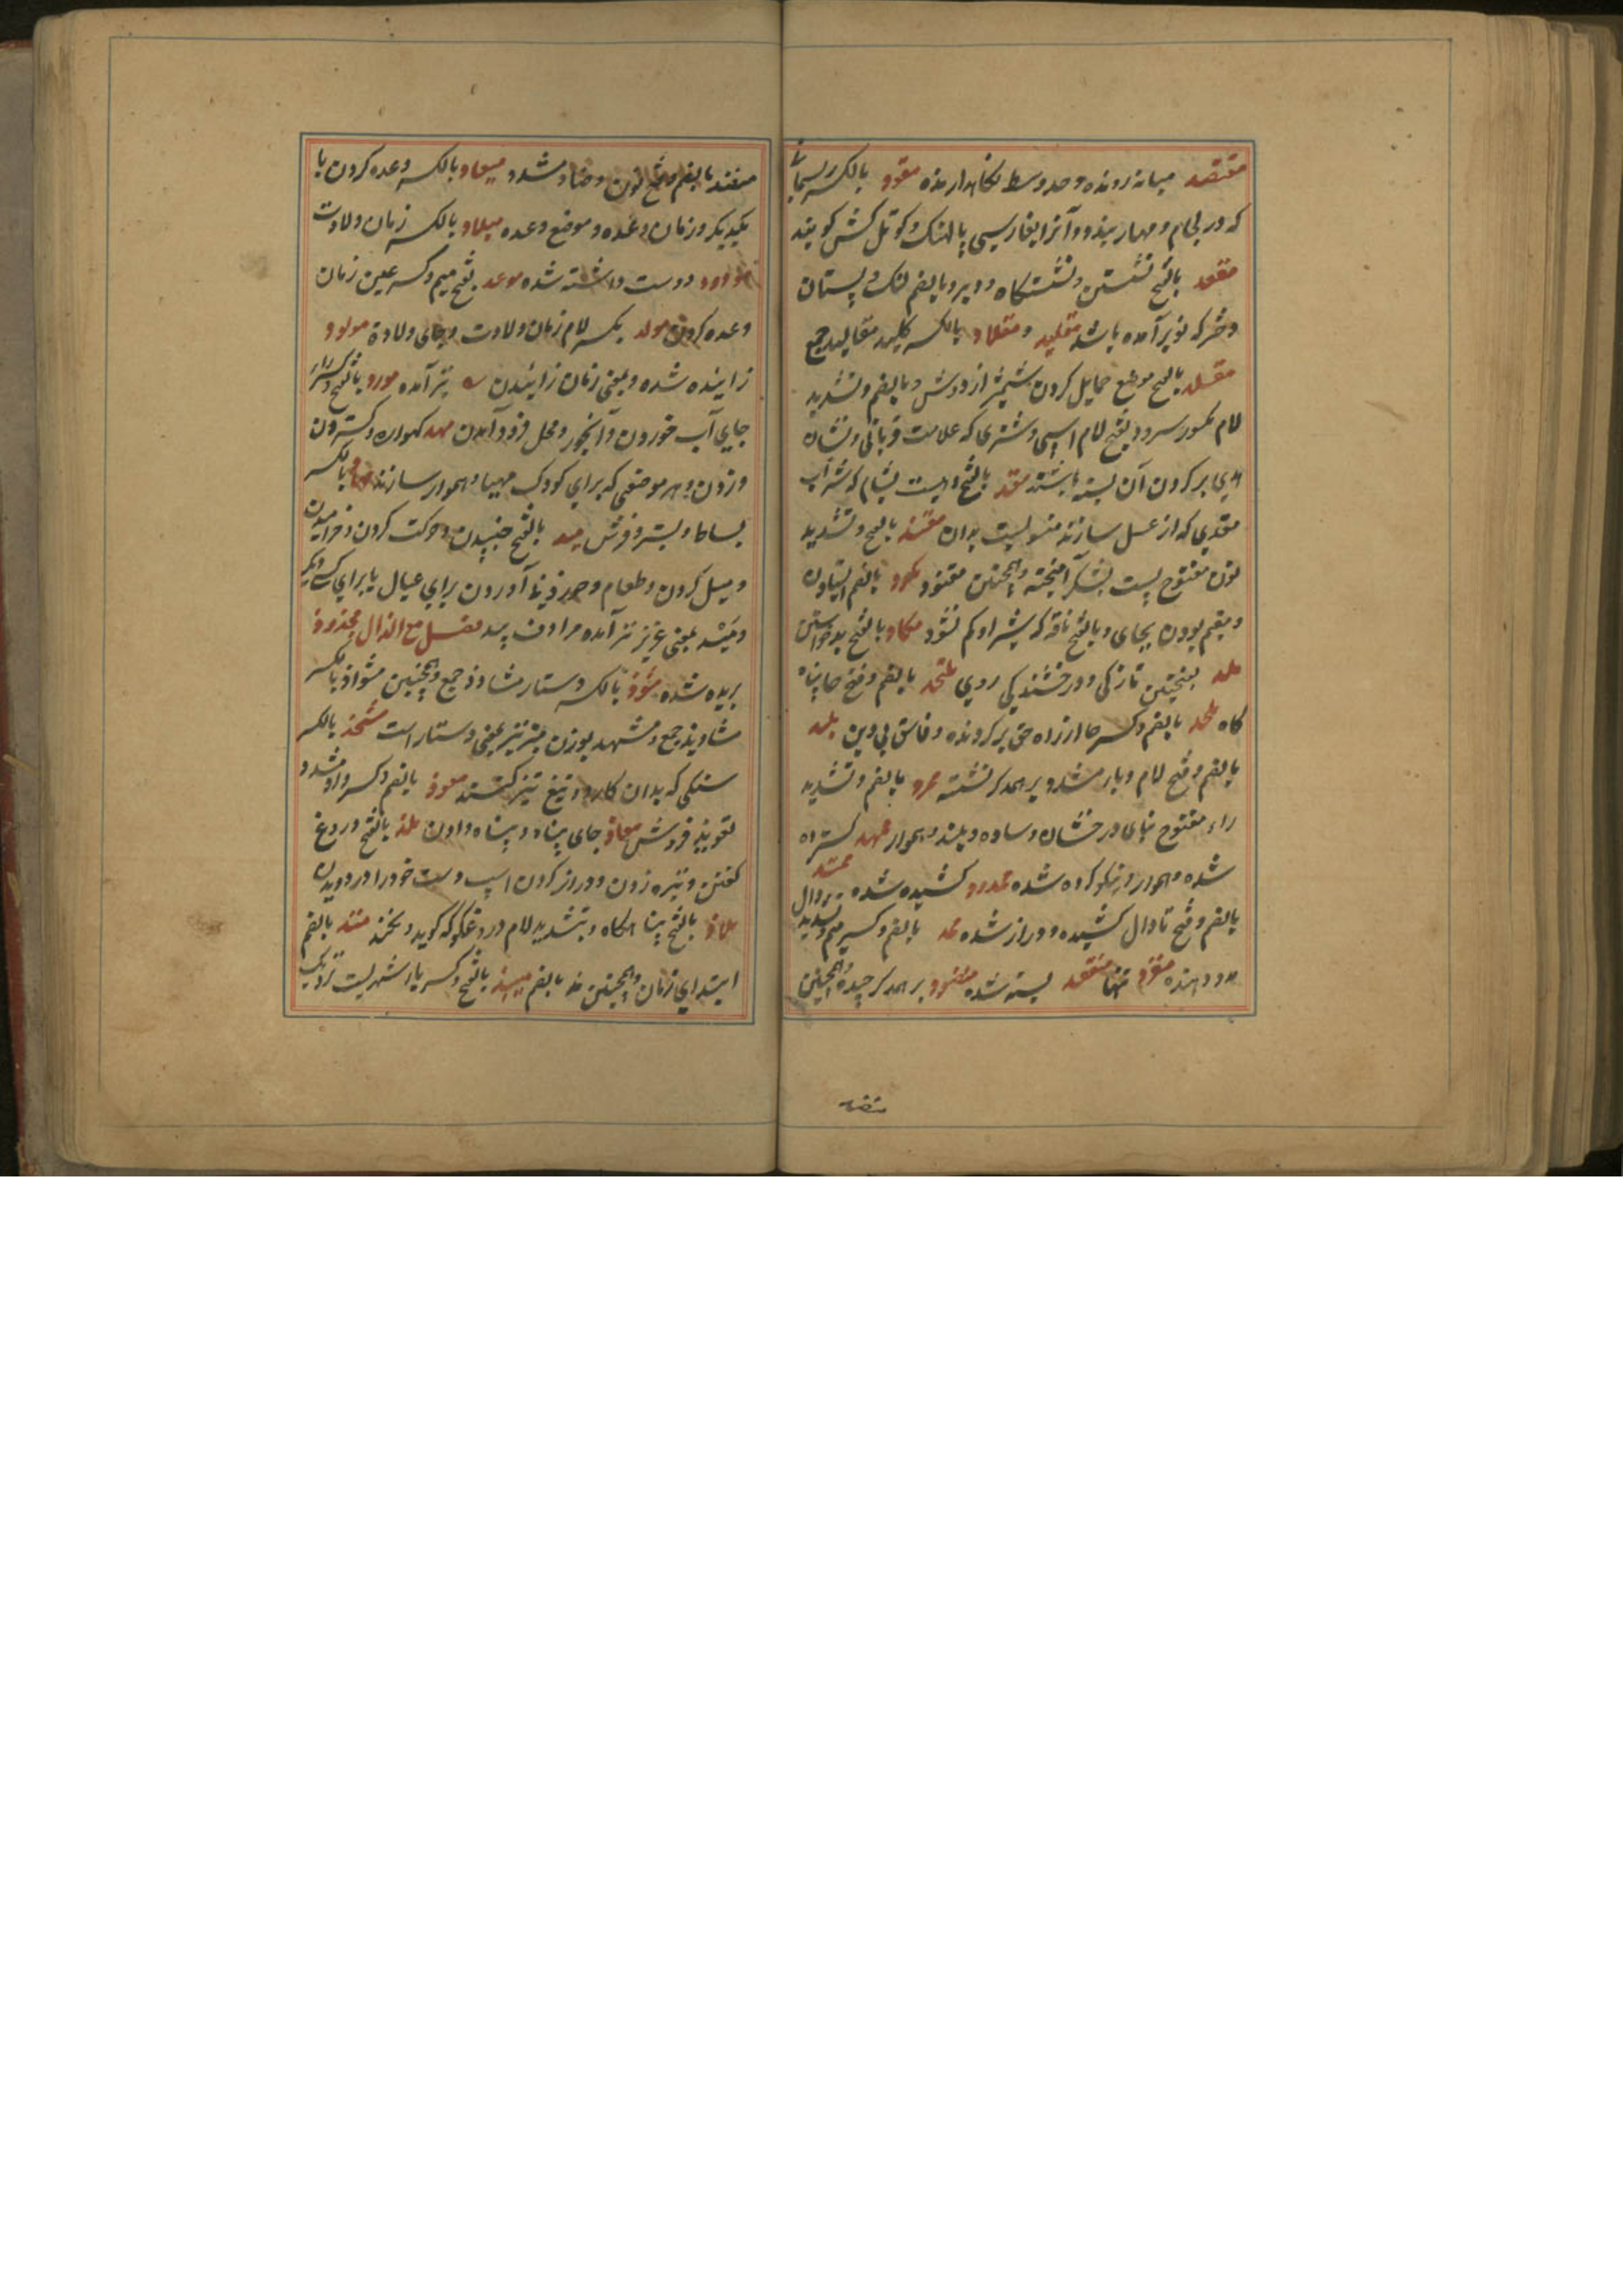 مقتصد میانه رونده و حد وسط نگاهدارنده مقود بالکسر ریسمانی
که در لجام و مهار بندند و آنرا بفارسی پالهنک و کوتل کش کویند
مقعد بالفتح نشستن و نشستگاه و دبر و بالضم لنک و پستان
دختر که نو برآمده باشد مقلید و مقلاد بالکسر کلید مقالید جمع
مقلد بالفتح موضع حمایل کردن شمشیر از دوش و بالضم و تشدید
لام مکسور سرود و بفتح لام اسپی و شتری که علامت قربانی و نشان
هدی بر کردن آن بسته باشند مقد بالفتح دهیست بشام که شراب
مقدی که از عسل سازند منسوبست بدان مقند بالضم و تشدید
نون مفتوح پست بشکر آمیخته و همچنین مقنود مکود بالضم ایستادن
و مقیم بودن بجای و بالفتح ناقه که شیر او کم نشود مکاد بالفتح بد خواستن
ملد بفتحتین تازکی و درخشندکی روی ملتحد بالضم و فتح حا پناه
کاه ملحد بالضم و کسر حا از راه حق بر کردنده و فاسق بی دین ملبد
بالضم و فتح لام و باء مشدد بر همدکر نشسته ممرد بالضم و تشدید
راء مفتوح بنای درخشان و ساده و بلند و هموار ممهد کسترده
شده و هموار و نیکو کرده شده ممدود کشیده شده ممتد
بالضم و فتح تا و دال کشیده و دراز شده ممد بالضم و کسر میم و تشدید دال
مدد دهنده منفرد تنها منعقد بسته شده منضود بر همدکر چیده و همچنین
منضد
منضد بالضم و فتح نون و ضاد مشدد میعاد بالکسر وعده کردن با
یکدیکر و زمان وعده و موضع وعده میلاد بالکسر زمان ولادت
مودود دوست داشته شده موعد بفتح میم و کسر عین زمان
وعده کردن مولد بکسر لام زمان ولادت و جای ولادة مولود
زاییده شده و بمعنی زمان زاییدن نیز آمده مورد بالفتح و کسر را
جای آب خوردن و آبخور و محل فرود آمدن مهد کهواره و کستردن
و زدن و هر موضعی که برای کودک مهیا و هموار سازند مهاد بالکسر
بساط و بستر و فرش مید بالفتح جنبیدن و حرکت کردن و خرامیدن
و میل کردن و طعام و جز آن آوردن برای عیال یا برای کسی دیکر
و مید بمعنی غیر نیز آمده مرادف بید فصل مع الذال مجذوذ
بریده شده مشوذ بالکسر دستار مشاوذ جمع و همچنین مشواذ بالکسر
مشاویذ جمع و مشهد بوزن منبر نیز بمعنی دستار است مشحذ بالکسر
سنکی که بدان کارد و تیغ تیز کنند معوذ بالضم و کسر واو مشدد
تعویذ فروش معاذ جای پناه و پناه دادن ملذ بالفتح دروغ
کفتن و نیزه زدن و دراز کردن اسپ دست خود را در دویدن
ملاذ بالفتح پناهکاه و بتشدید لام دروغکو که کوید و نکند منذ بالضم
ابتدای زمان و همچنین مذ بالضم میبذ بالفتح و کسر باء شهریست نزدیک